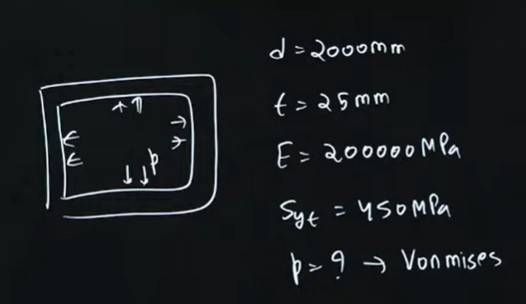 d = 2000mm
t = 25mm
E = 200000MPa
p
Syt = 450MPa
p = ? → Vonmises